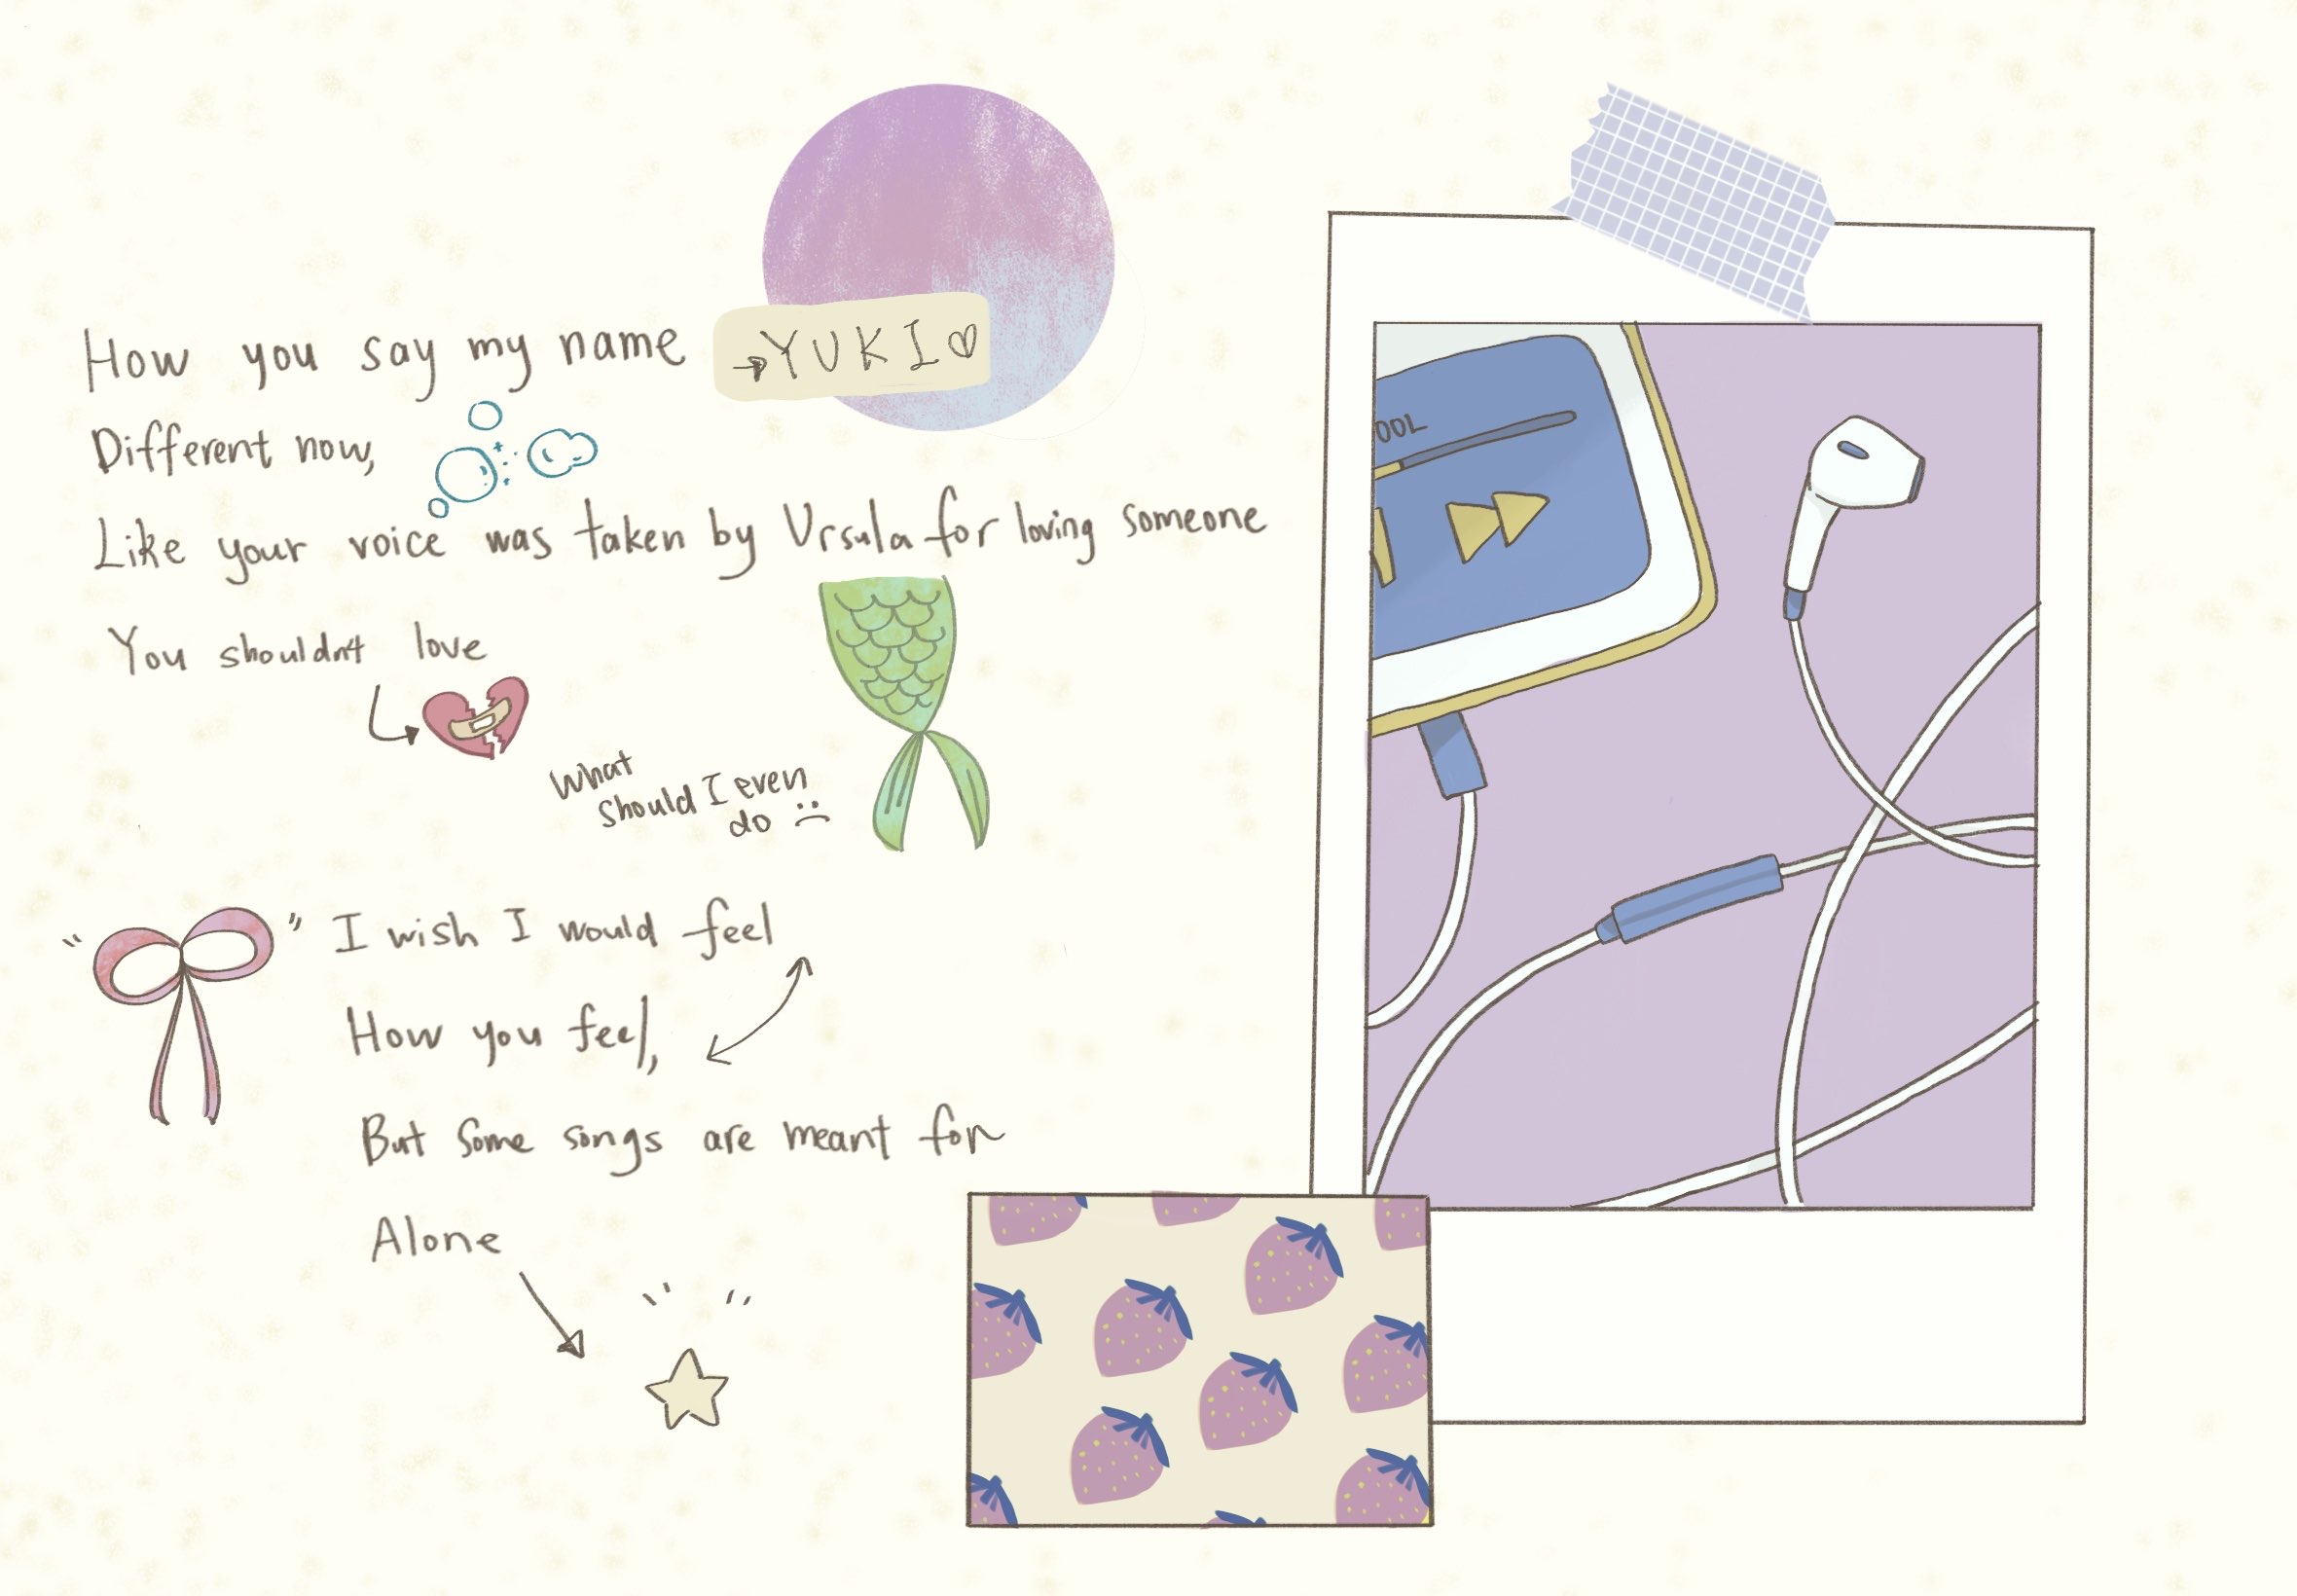 How you say my name →YUKI♡
Different now,
Like your voice was taken by Ursula for loving someone
You shouldn't love
What
should I even
do :(
I wish I would feel
How you feel,
But some songs are meant for
Alone
OOL